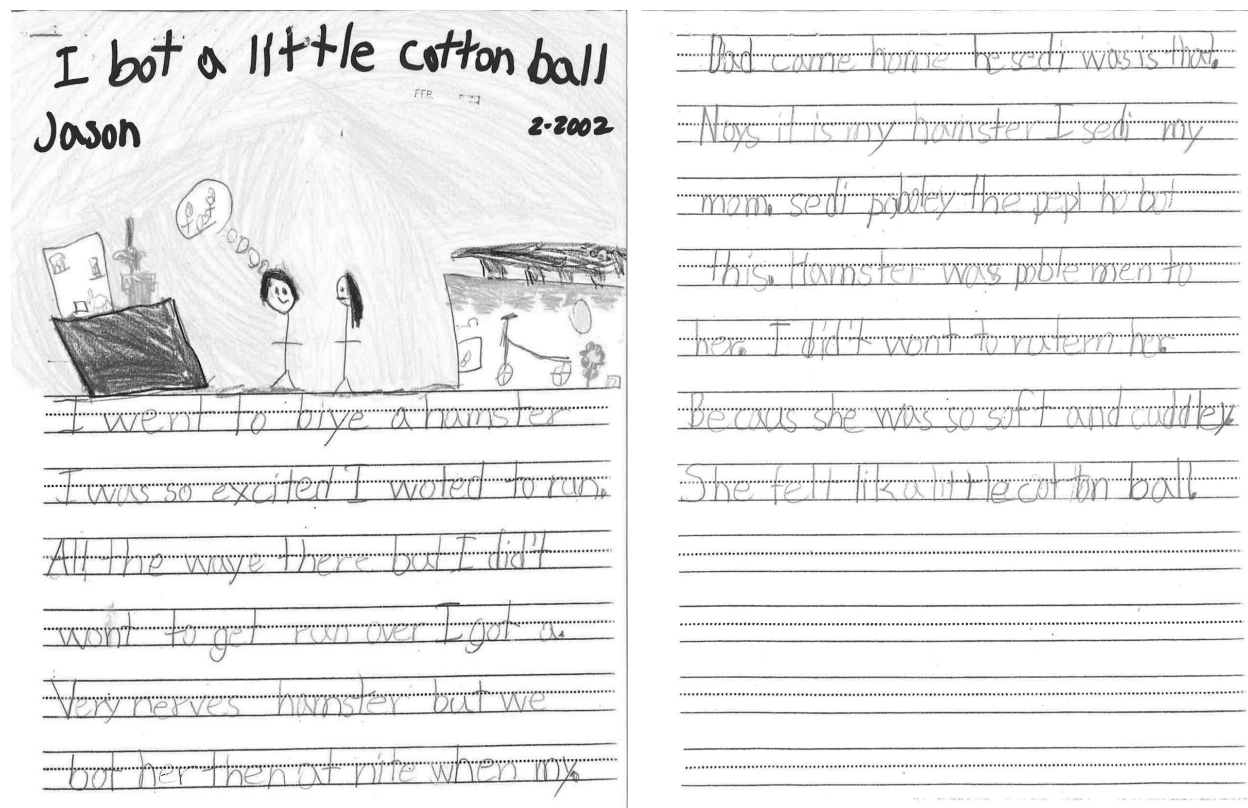 I bot a little cotton ball
FEB
Jason
2-2002
I went to biye a hamster
I was so excited I woted to run.
All the waye there but I did't
wont to get run over I got a.
Very nerves hamster but we
bot her then at nite when my.
Dad came home he sedi was is that.
Noys it is my hamster I sedi my
mom. sedi pobbley the pepl ho bot
this. Hamster was poble men to
her. I did't wont to rutern her
Becaus she was so soft and cuddley.
She felt lik a little cotton ball.